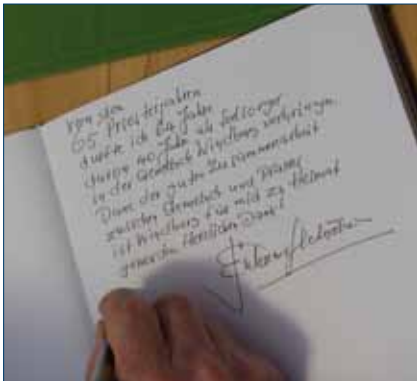 von den
65 Priesterjahren
durfte ich 64 Jahre
davon 40 Jahre als Seelsorger
in der Gemeinde Windberg verbringen.
Dank der guten Zusammenarbeit
zwischen Gemeinde und Pfarrei
ist Windberg für mich zu Heimat
geworden. Herzlichen Dank!